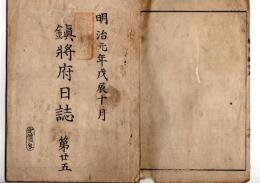 明治元年戊辰十月
鎭將府日誌 第廿五